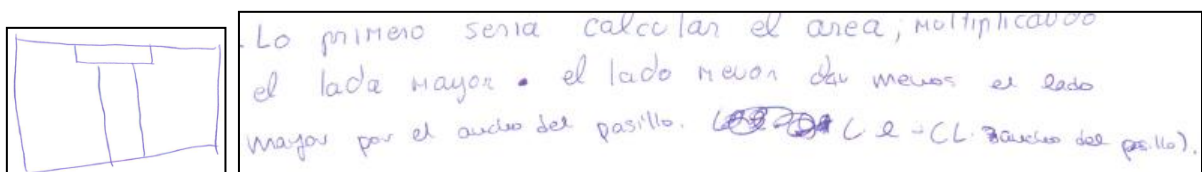 . Lo primero seria calcular el area, multiplicando
el lada mayor • el lado menor menos el lado
mayor por el ancho del pasillo. (L · ancho del pasillo).